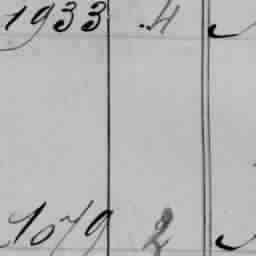 1933 .4
1079 2